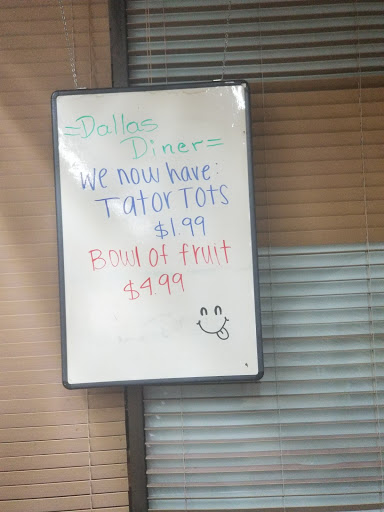 =Dallas
Diner=
We now have:
Tator Tots
$1.99
Bowl of fruit
$4.99